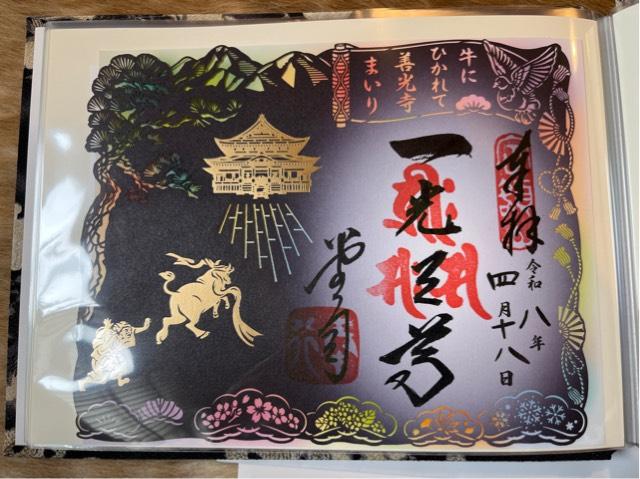 牛に
ひかれて
善光寺
まいり
奉拝
令和八年
四月十八日
一光三尊